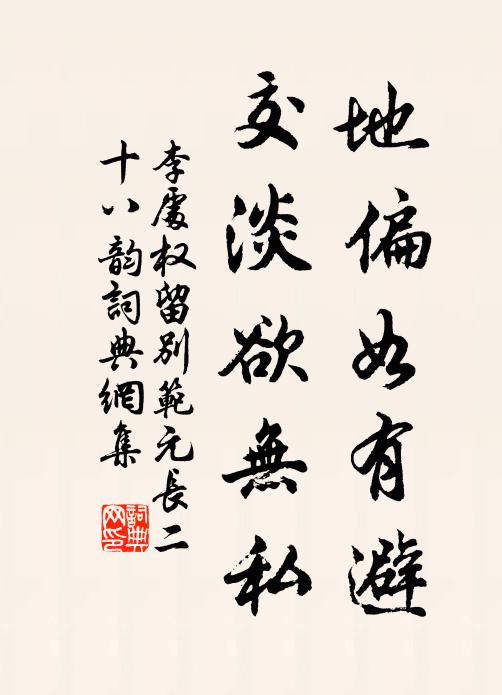 地偏如有避
交淡欲無私
李處权留別範元長二
十八韵詞典網集
詞典网印